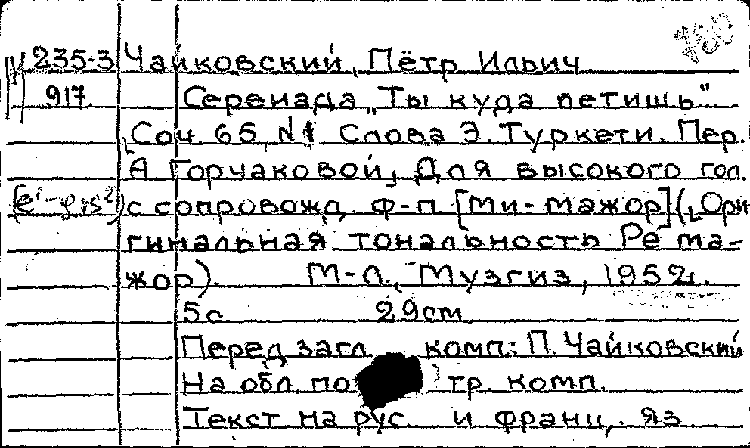 235-3 Чайковский, Пётр Ильич
917 Серенада „Ты куда летишь"
Соч 65, №1 Слова Э. Туркети. Пер.
А Горчаковой, Для высокого гол.
с сопровожд. ф-п [Ми-мажор] (Ори
гинальная тональность Ре ма-
жор). М-Л., Музгиз, 1952г.
5с 29см
Перед загл. комп: П. Чайковский
На обл. по тр. комп.
Текст на рус. и франц. яз